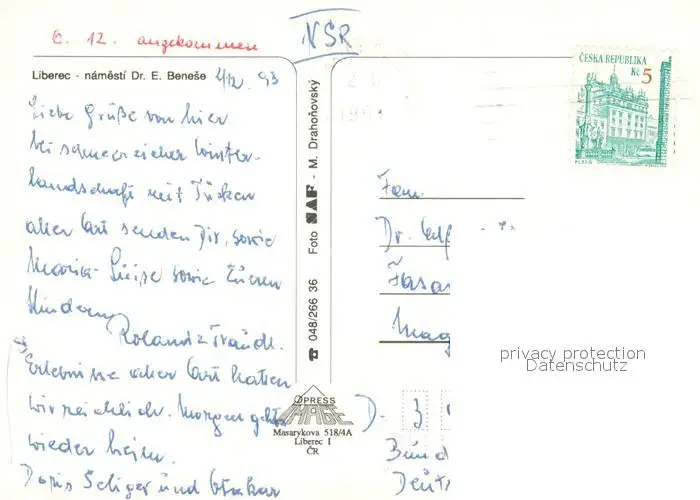 6. 12. angekommen
NŠR
Liberec - náměstí Dr. E. Beneše 4/12. 93
Liebe Grüße von hier
bei schneereicher Winter-
landschaft mit Tücken
aller Art senden Dir, sowie
Maria-Luise sowie Eueren
Kindern
Roland & Traudl.
Erlebnisse aller Art hatten
wir reichlich. Morgen geht's
wieder heim.
Doris Seliger und Otakar
☎ 048/266 36 Foto SAF - M. Drahoňovský
PRESS
IMAGE
Masarykova 518/4A
Liberec I
ČR
ČESKÁ REPUBLIKA
Kč 5
PLZEŇ
Fam.
Dr.
Fasa
Mag
D-
Bund
Deut
privacy protection
Datenschutz